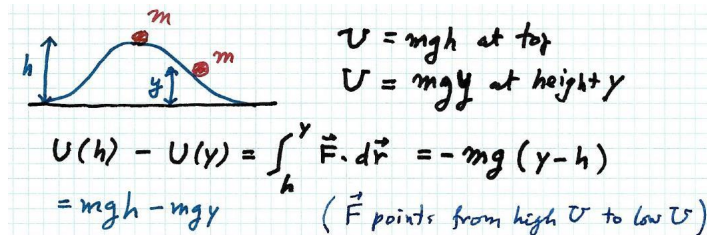 m
m
h
y
U = mgh at top
U = mgy at height y
U(h) - U(y) = ∫_h^y F⃗ · dr⃗ = -mg (y-h)
= mgh - mgy
(F⃗ points from high U to low U)